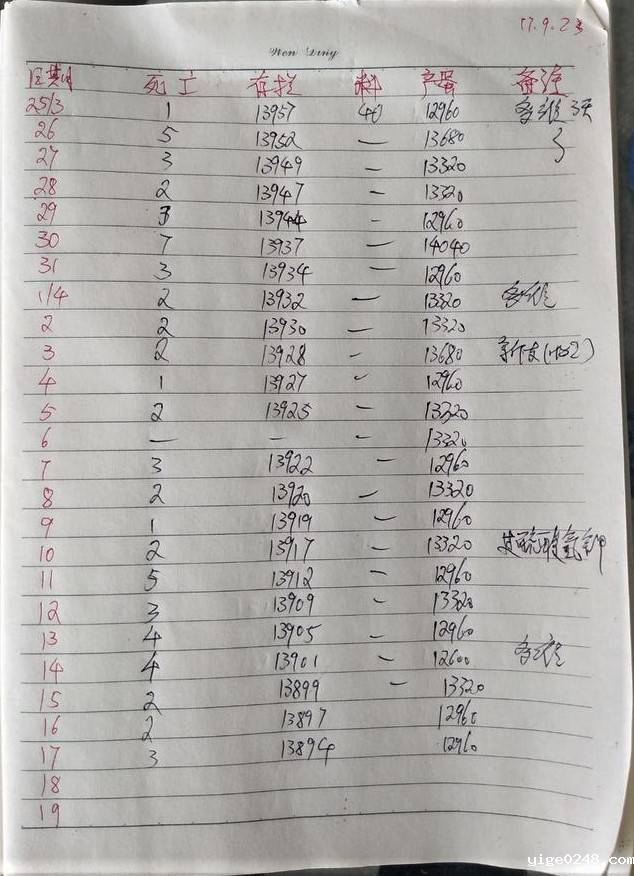 17.9.23
Wen Ding
日期 死亡 存栏 料 产蛋 备注
25/3 1 13957 40 12960 多维3天
26 5 13952 — 13680
27 3 13949 — 13320
28 2 13947 — 13320
29 3 13944 - 12960
30 7 13937 — 14040
31 3 13934 — 12960
1/4 2 13932 — 13320 多维
2 2 13930 — 13320
3 2 13928 - 13680
4 1 13927 - 12960
5 2 13925 — 13320
6 — — — 13320
7 3 13922 — 12960
8 2 13920 — 13320
9 1 13919 — 12960
10 2 13917 — 13320 硫酸氢钾
11 5 13912 — 12960
12 3 13909 — 13320
13 4 13905 - 12960
14 4 13901 — 12600 多维
15 2 13899 — 13320
16 2 13897 12960
17 3 13894 12960
18
19
yige0248.com